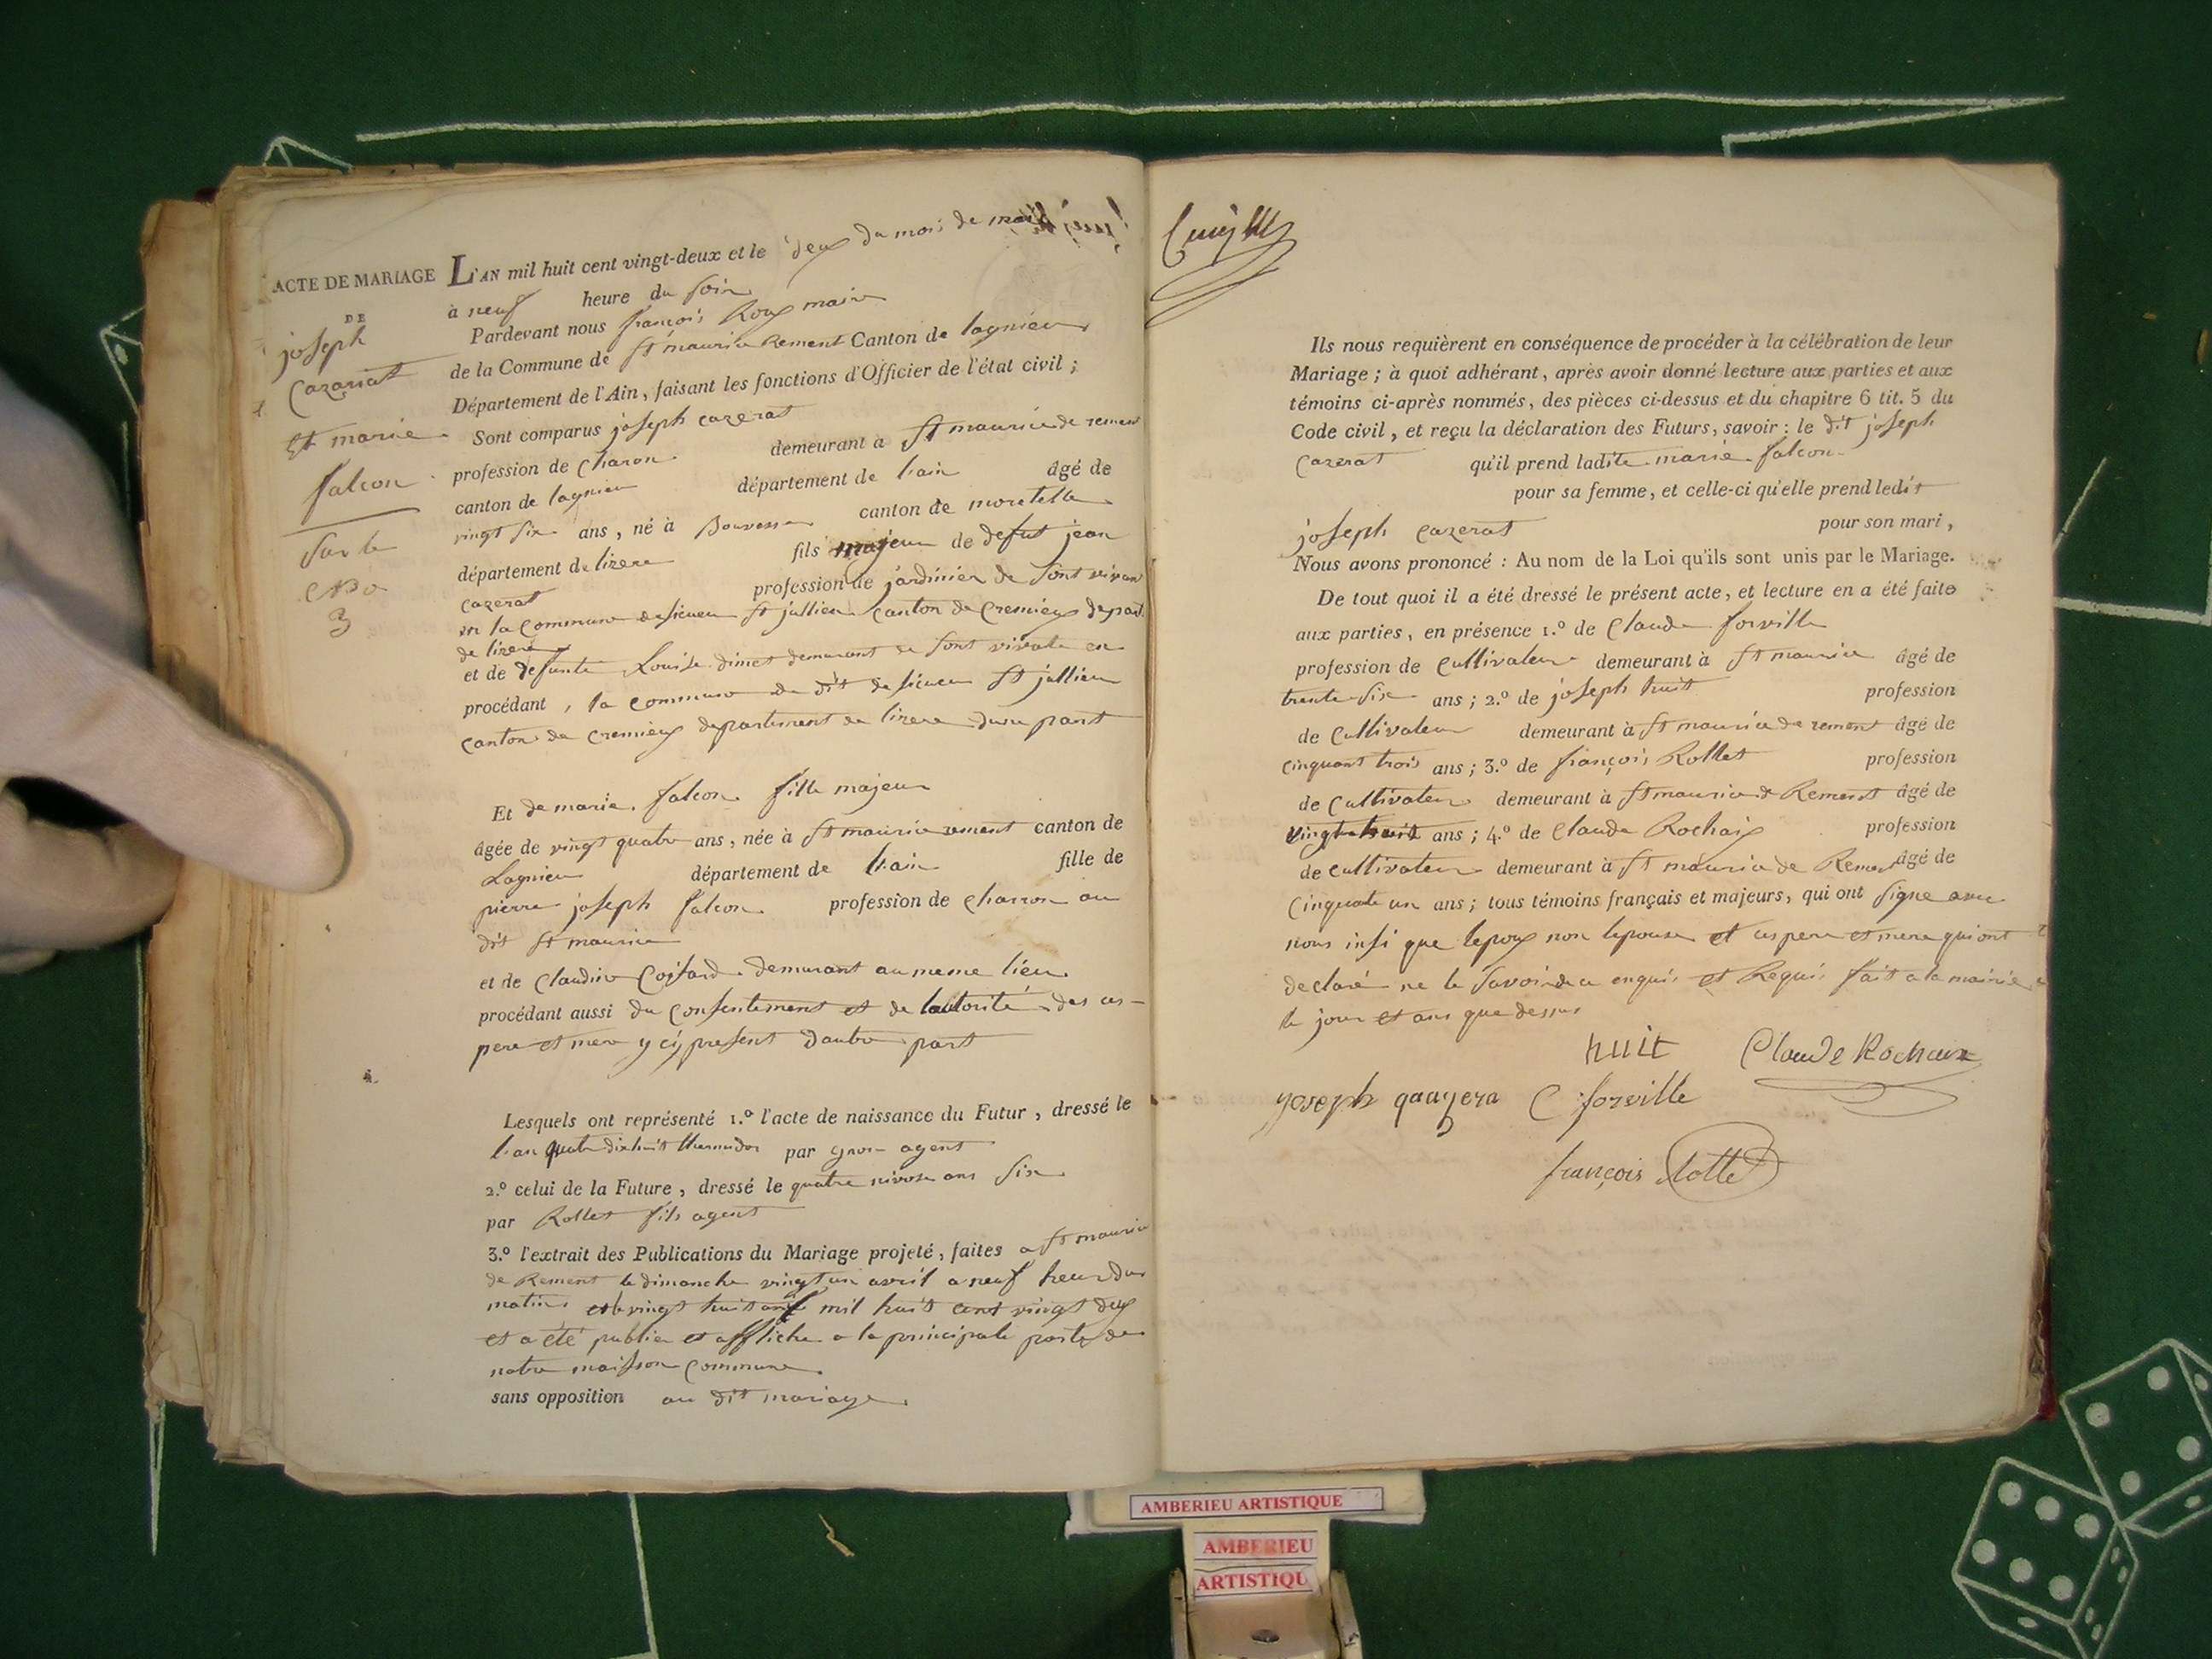 ACTE DE MARIAGE
DE
joseph
Cazerat
Et marie
falcon
Sur le
3
L'AN mil huit cent vingt-deux et le deux du mois de mai
à neuf heure du soir
Pardevant nous françois Roux maire
de la Commune de St maurice Rement Canton de lagnieu
Département de l'Ain, faisant les fonctions d'Officier de l'état civil ;
Sont comparus joseph cazerat
profession de Charon demeurant à St maurice de rement
canton de lagnieu département de lain âgé de
vingt six ans, né à Bouvesse canton de moretelle
département de lizere fils majeur de defut jean
cazerat profession de jardinier de sont vivan
en la Commune de sicieu St jullien canton de Cremieux depart
de lizere
et de defunte Louise dimet demeurant de sont vivate en
procédant, la commune du dit de sicieu St jullien
canton de Cremieux departement de lizere dune part
Et de marie falcon fille majeur
âgée de vingt quatre ans, née à St maurice rement canton de
Lagnieu département de lain fille de
pierre joseph falcon profession de Charron au
dit St maurice
et de Claudine demurant au meme lieu
procédant aussi du Consentement et de lautorité des ces
pere et mere y cy present dautre part
Lesquels ont représenté 1.º l'acte de naissance du Futur, dressé le
lan quatre dixhuit thermidor par agent
2.º celui de la Future, dressé le quatre nivose ans six
par Rollet fils agent
3.º l'extrait des Publications du Mariage projeté, faites a St maurice
de Rement le dimanche vingt un avril a neuf heur du
matin et le vingt huit mil huit cent vingt deux
et a été publier et affficher a la principale porte de
notre maisson Commune
sans opposition au dit mariage
Ils nous requièrent en conséquence de procéder à la célébration de leur
Mariage ; à quoi adhérant, après avoir donné lecture aux parties et aux
témoins ci-après nommés, des pièces ci-dessus et du chapitre 6 tit. 5 du
Code civil, et reçu la déclaration des Futurs, savoir : le dit joseph
Cazerat qu'il prend ladite marie falcon
pour sa femme, et celle-ci qu'elle prend ledit
joseph cazerat pour son mari,
Nous avons prononcé : Au nom de la Loi qu'ils sont unis par le Mariage.
De tout quoi il a été dressé le présent acte, et lecture en a été faite
aux parties, en présence 1.º de Claude forville
profession de Cultivateur demeurant à St maurice âgé de
trente six ans ; 2.º de joseph huit profession
de Cultivateur demeurant à St maurice de rement âgé de
cinquant trois ans ; 3.º de françois Rollet profession
de Cultivateur demeurant à St maurice de Rement âgé de
vingt huit ans ; 4.º de Claude Rochaix profession
de Cultivateur demeurant à St maurice de Rement âgé de
Cinquate un ans ; tous témoins français et majeurs, qui ont signe avec
nous insi que lepoux non lepouse et ces pere et mere qui ont
declaré ne le savoir de ce enquis et Requis fait a la mairie
le jour et ans que dessus
huit Claude Rochaix
yoseph qaayera C forville
françois Rollet
AMBERIEU ARTISTIQUE
AMBERIEU
ARTISTIQU